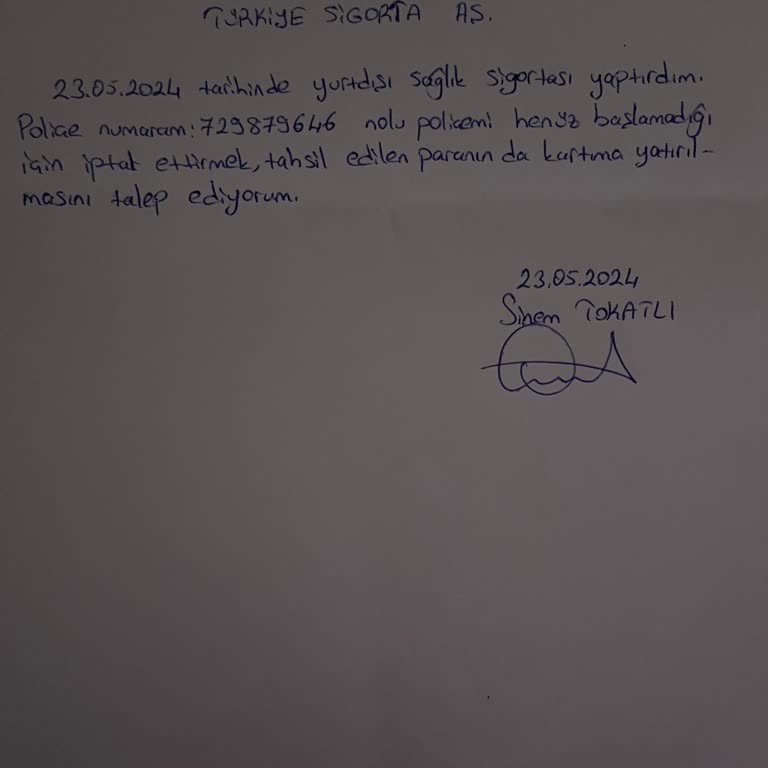 TÜRKİYE SİGORTA AS.
23.05.2024 tarihinde yurtdışı sağlık sigortası yaptırdım.
Poliçe numaram: 729879646 nolu policemi henüz başlamadığı
için iptal ettirmek, tahsil edilen paranın da kartıma yatırıl-
masını talep ediyorum.
23.05.2024
Sinem TOKATLI